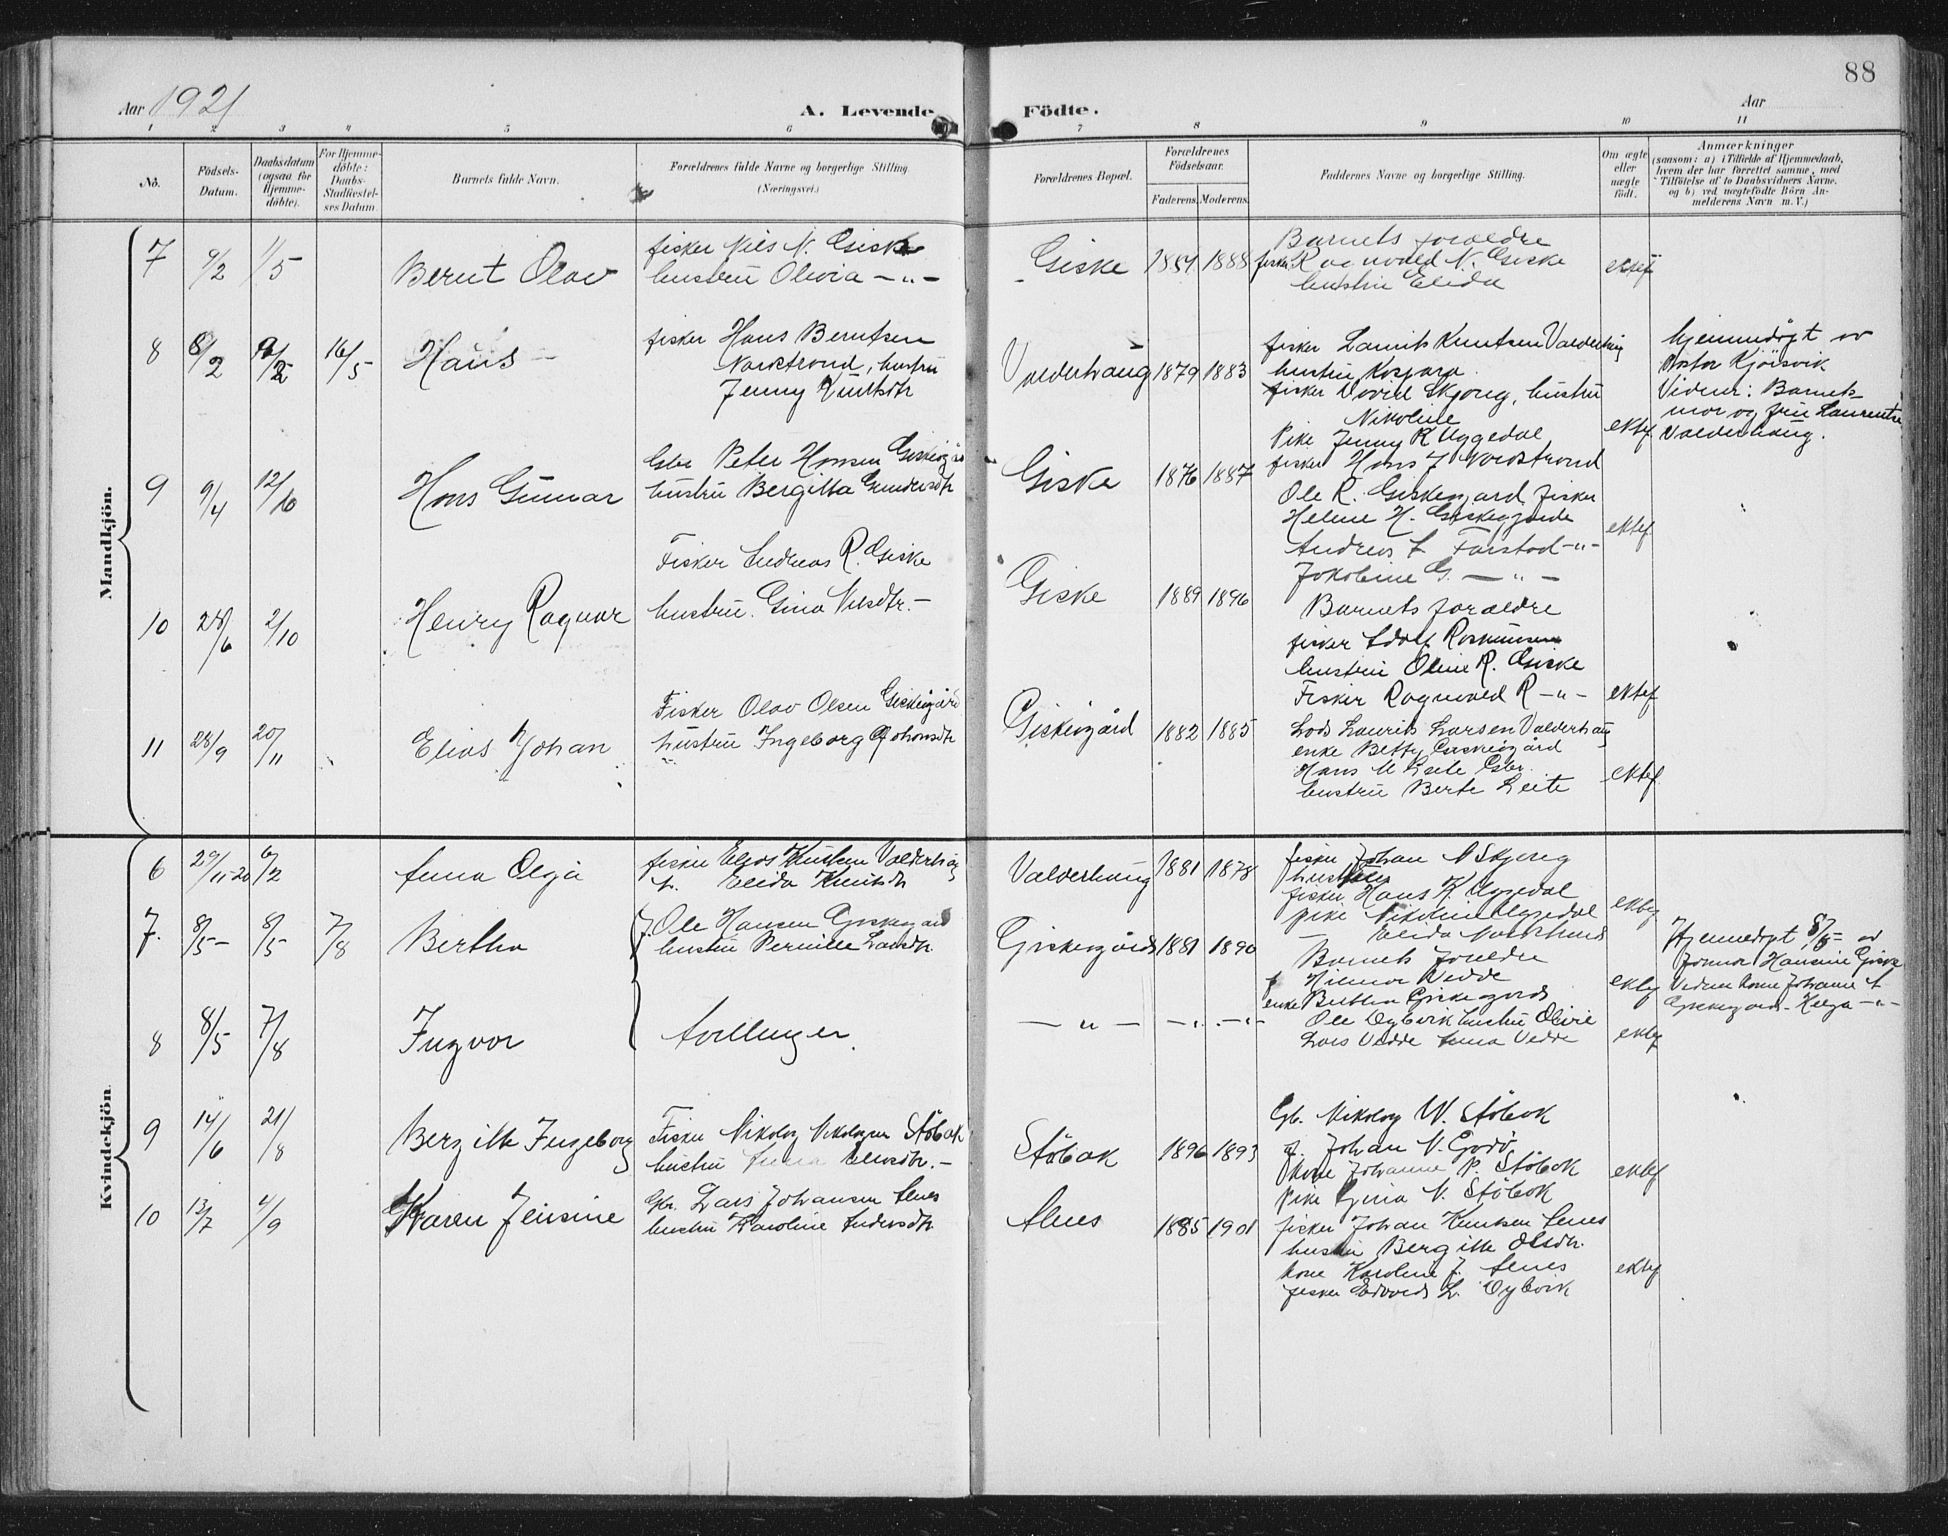 88
Aar 1921
A. Levende
Födte.
Aar
1 2 3 4 5 6 7 8 9 10 11
No.
Födsels-
Datum.
Daabsdatum
(ogsaa for
Hjemme-
döbte).
For Hjemme-
döbte:
Daabs-
Stadfæstel-
ses Datum.
Barnets fulde Navn.
Forældrenes fulde Navne og borgerlige Stilling
(Næringsvei.)
Forældrenes Bopæl.
Forældrenes
Födselsaar.
Faderens. Moderens.
Faddernes Navne og borgerlige Stilling.
Om ægte
eller
uægte
födt.
Anmærkninger
(saasom: a) i Tilfælde af Hjemmedaab,
hvem der har forrettet samme, med
Tilföielse af to Daabsvidners Navne,
og b) ved uægtefödte Börn An-
melderens Navn m. V.)
Mandkjön.
7 9/2 1/5 Bernt Olav
fisker Nils N. Giske
hustru Olivia — " —
Giske 1888
Barnets forældre
fisker Ragnvald N. Giske
hustru Elida
ektef
8 8/2 16/5 Hans
fisker Hans Berntsen
Nordstrand, hustru
Jenny Knutsdtr
Valderhaug 1879 1883
fisker Laurits Knutsen Valderhaug
hustru
fisker Skjong, hustru
Nikoline
Pike Jenny K Uggedal
ektef
hjemmedöpt av
Kjörsvik
Vidner: Barnets
mor og fru Laurentse
Valderhaug.
9 9/4 12/10 Hans Gunnar
Gbr Peter Hansen Giskegård
hustru Bergitta Gundersdtr
Giske 1876 1887
fisker Hans J Nordstrand
Ole R. Giskegjard, fisker
Helene H. Giskegjerde
Andreas L Farstad — " —
Jakobine G. — " —
ektef
10 28/6 2/10 Henry Ragnar
Fisker Andreas R. Giske
hustru. Gina Nilsdtr. —
Giske 1889 1896
Barnets forældre
fisker Adolf Rasmussen
hustru Oline R. Giske
Fisker Ragnvald R — " —
ektef
11 28/9 20/11 Elias Johan
Fisker Olav Olsen Giskegård
hustru Ingeborg Johansdtr
Giskegård 1882 1885
Lods Laurits Larsen Valderhaug
enke Betty Giskegård
Hans M Leite Gbr.
hustru Berte Leite
ektef
Kvindekjön
6 29/11-20 6/2 Anna Olga
fisker Elias Knutsen Valderhaug
h. Elida Knutsdtr
Valderhaug 1881 1878
fisker Johan N Skjong
hustru
fisker Hans K. Uggedal
pike Nikoline Uggedal
— Elida
ektef
7. 8/5 — 8/5 7/8 Bertha
f. Ole Hansen Giskegård
hustru Pernille Larsdtr.
Giskegårds 1881 1890
Barnets foreldre
Hilmar Vedde
enke Berthea Giskegjerds
ektef
Hjemmedöpt 8/5 — av
Jormor Hansine Giske
Vidner kone Johanne A
Giskegård — Helga — " —
8 8/5 7/8 Ingvor
tvillinger
— " — — " — — " —
Ole Dybvik hustru Olivie
Lars Vedde Anna Vedde
ektef
9 14/6 21/8 Bergitte Ingeborg
Fisker Nikolay Nikolaysen Støbak
hustru Anna Eliasdtr. —
Støbak 1896 1893
Gb. Nikolay W. Støbak
f. Johan N. Godö
Kone Johanne P. Støbak
Pike Gina N. Støbak
ektef
10 13/7 4/9 Karen Jensine
Gbr. Lars Johansen Alnes
hustru Karoline Andersdtr
Alnes 1885 1901
fisker Johan Knutsen Alnes
hustru Bergitte Olsdtr.
kone Karoline J. Alnes
fisker Edvard L. Dybvik
ektef